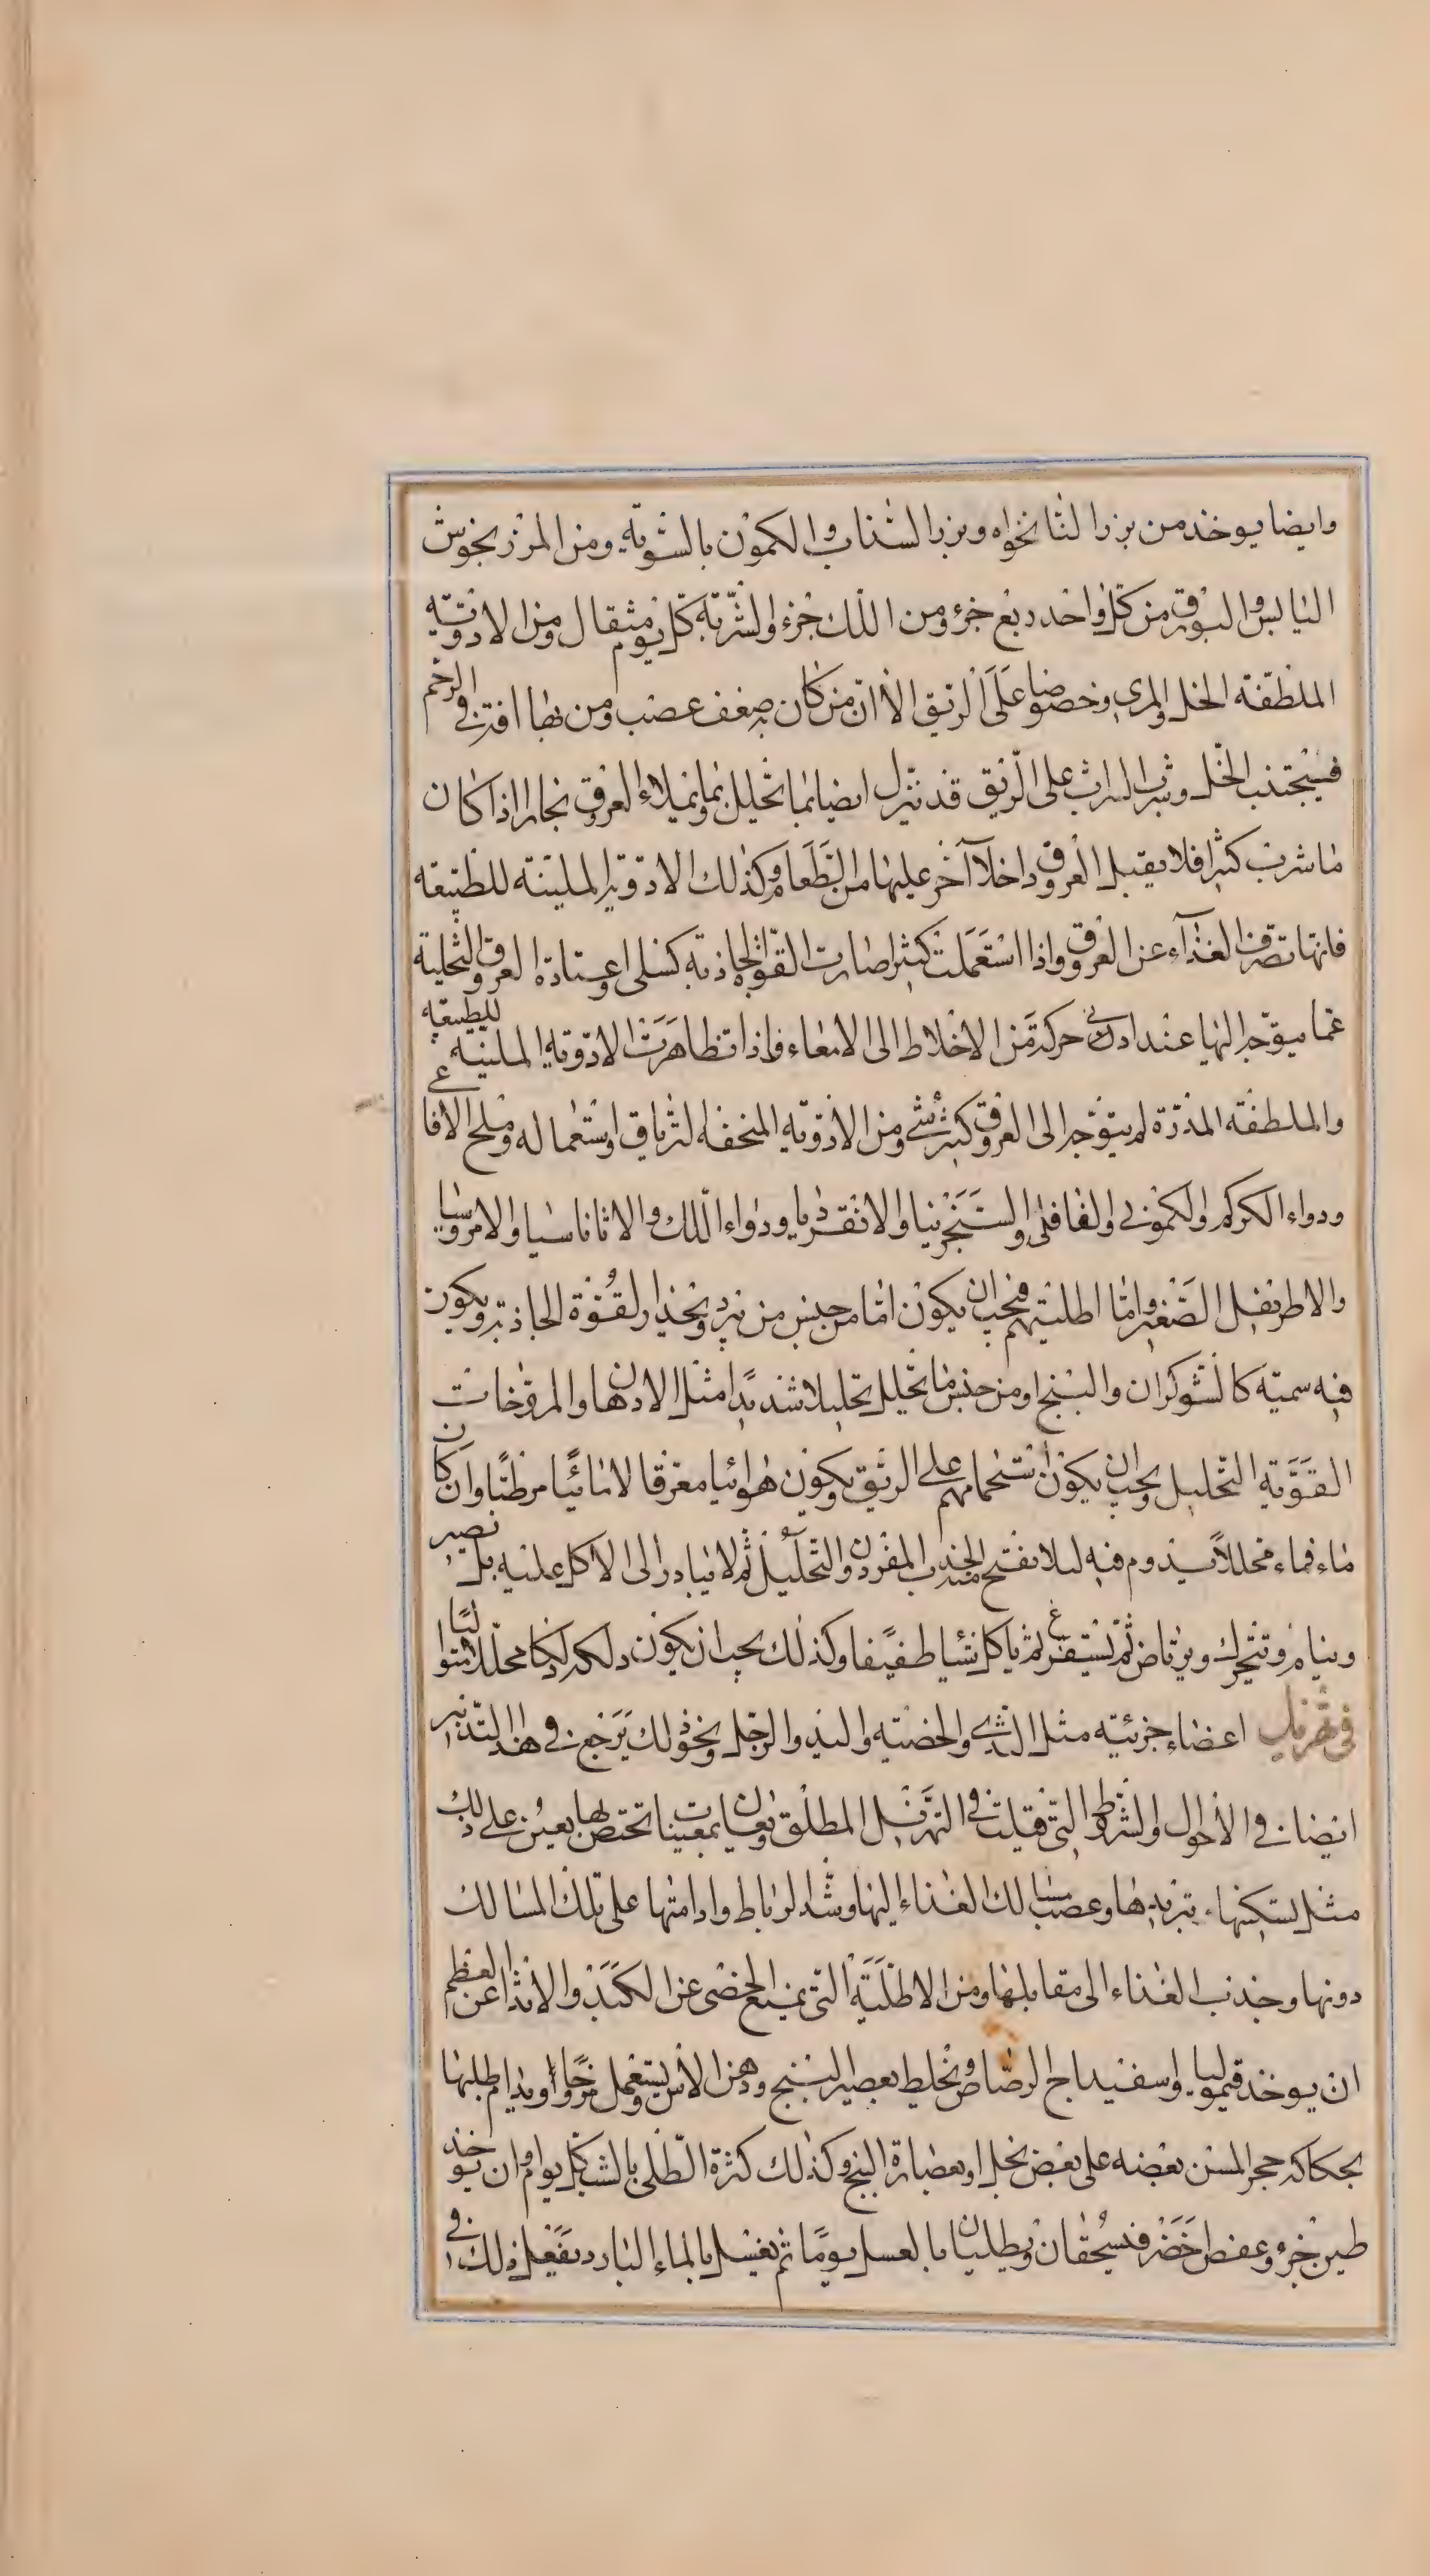 وايضا يوخذ من بزر النانخواه وبزر السذاب والكمون بالسوية ومن المرزنجوش
اليابس والبورق من كل واحد ربع جزؤ ومن اللك جزء والشربة كل يوم مثقال ومن الادوية
الملطفة الخل والمرى وخصوصا على الريق الا ان من كان به ضعف عصب ومن بها افة فى الرحم
فيجتنب الخل وشرب الشراب على الريق قد يهزل ايضا بما يحلل وبما يملاء العروق بخارا اذا كان
ما شرب كثيرا فلا يقبل العروق داخلا آخر عليها من الطعام وكذلك الادوية الملينة للطبيعه
فانها تصرف الغذآء عن العروق واذا استعملت كثيرا صارت القوة الجاذبة كسلى او عتادة العروق التخلية
عما يتوجه اليها عند ادنى حركة من الاخلاط الى الامعاء فاذا تظاهرت الادوية الملينة للطبيعه
والملطفة المدرة لم يتوجه الى العروق كثير شى ومن الادوية المنحفة الترياق واستعماله وملح الافاعى
ودواء الكركم والكمونى والفلافلى والسنجرينيا والانقرديا ودواء اللك والاثاناسيا والامروسيا
والاطريفل الصغير واما اطليتهم فيجب ان يكون اما من جنس من يبرد ويخدر القوة الجاذبة ويكون
فيه سمية كالشوكران والبنج او من جنس ما يحلل تحليلا شديدا مثل الادهان والمروخات
القوية التحليل ويجب ان يكون استحمامهم على الريق ويكون هوائيا معرقا لا مائيا مرطبا وان كان
ماء فماء محللا يدوم فيه ليلا يفتح الجذب المقرون والتحليل ثم لا يبادر الى الاكل عليه بل يصبر
وينام ويتحرك ويرتاض ثم يستفرغ ثم ياكل شيا طفيفا وكذلك يجب ان يكون دلكه دلكا محللا متواليا
فى تهزيل اعضاء جزئية مثل الثدى والخصية واليد والرجل ونحو ذلك يرجع فى هذا التدبير
ايضا فى الاحوال والشروط التى قيلت فى التهزيل المطلق ويعان بمعينات تختص بها يعين على ذلك
مثل تسكينها تبريدها وعصب مسالك الغذاء اليها وشد الرباط وادامتها على تلك المسالك
دونها وجذب الغذاء الى مقابلها ومن الاطلية التى يمنع الخصى عن الكبد والاثداء عن العظم
ان يوخذ قيموليا واسفيداج الرصاص ويخلط بعصير البنج ودهن الآس يستعمل مروخا او يدام طليها
بحكاكه حجر المسن بعضه على بعض بخل او بعصارة البنج وكذلك كثرة الطلى بالشب كل يوم وان يوخذ
طين جزء وعفص اخضر فيسحقان ويطليان بالعسل يوما ثم يغسل بالماء البارد يفعل ذلك فى ا